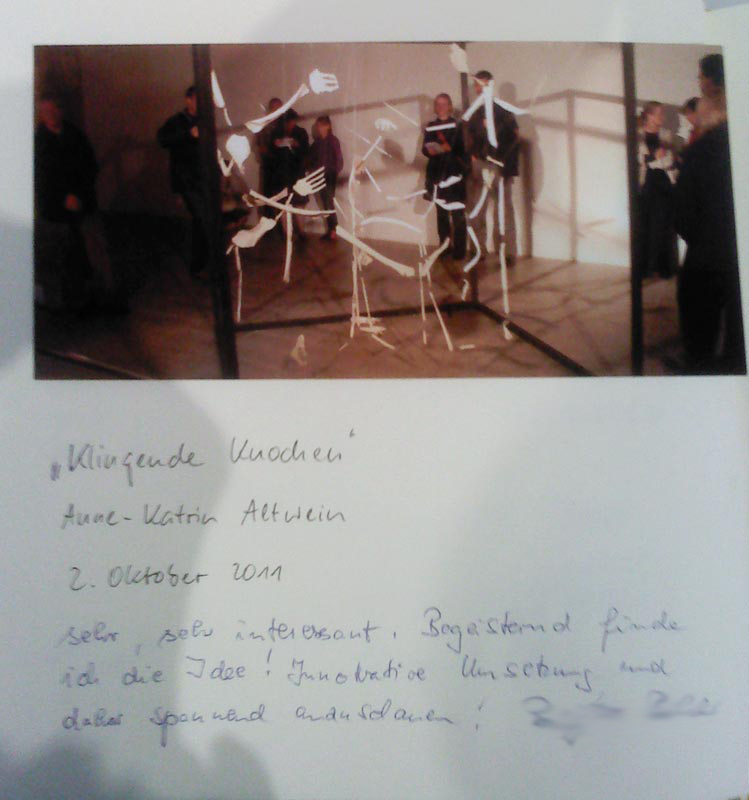 „Klingende Knochen“
Anne-Katrin Altwein
2. Oktober 2011
sehr, sehr interessant. Begeisternd finde
ich die Idee! Innovative Umsetzung und
daher spannend anzuschauen!